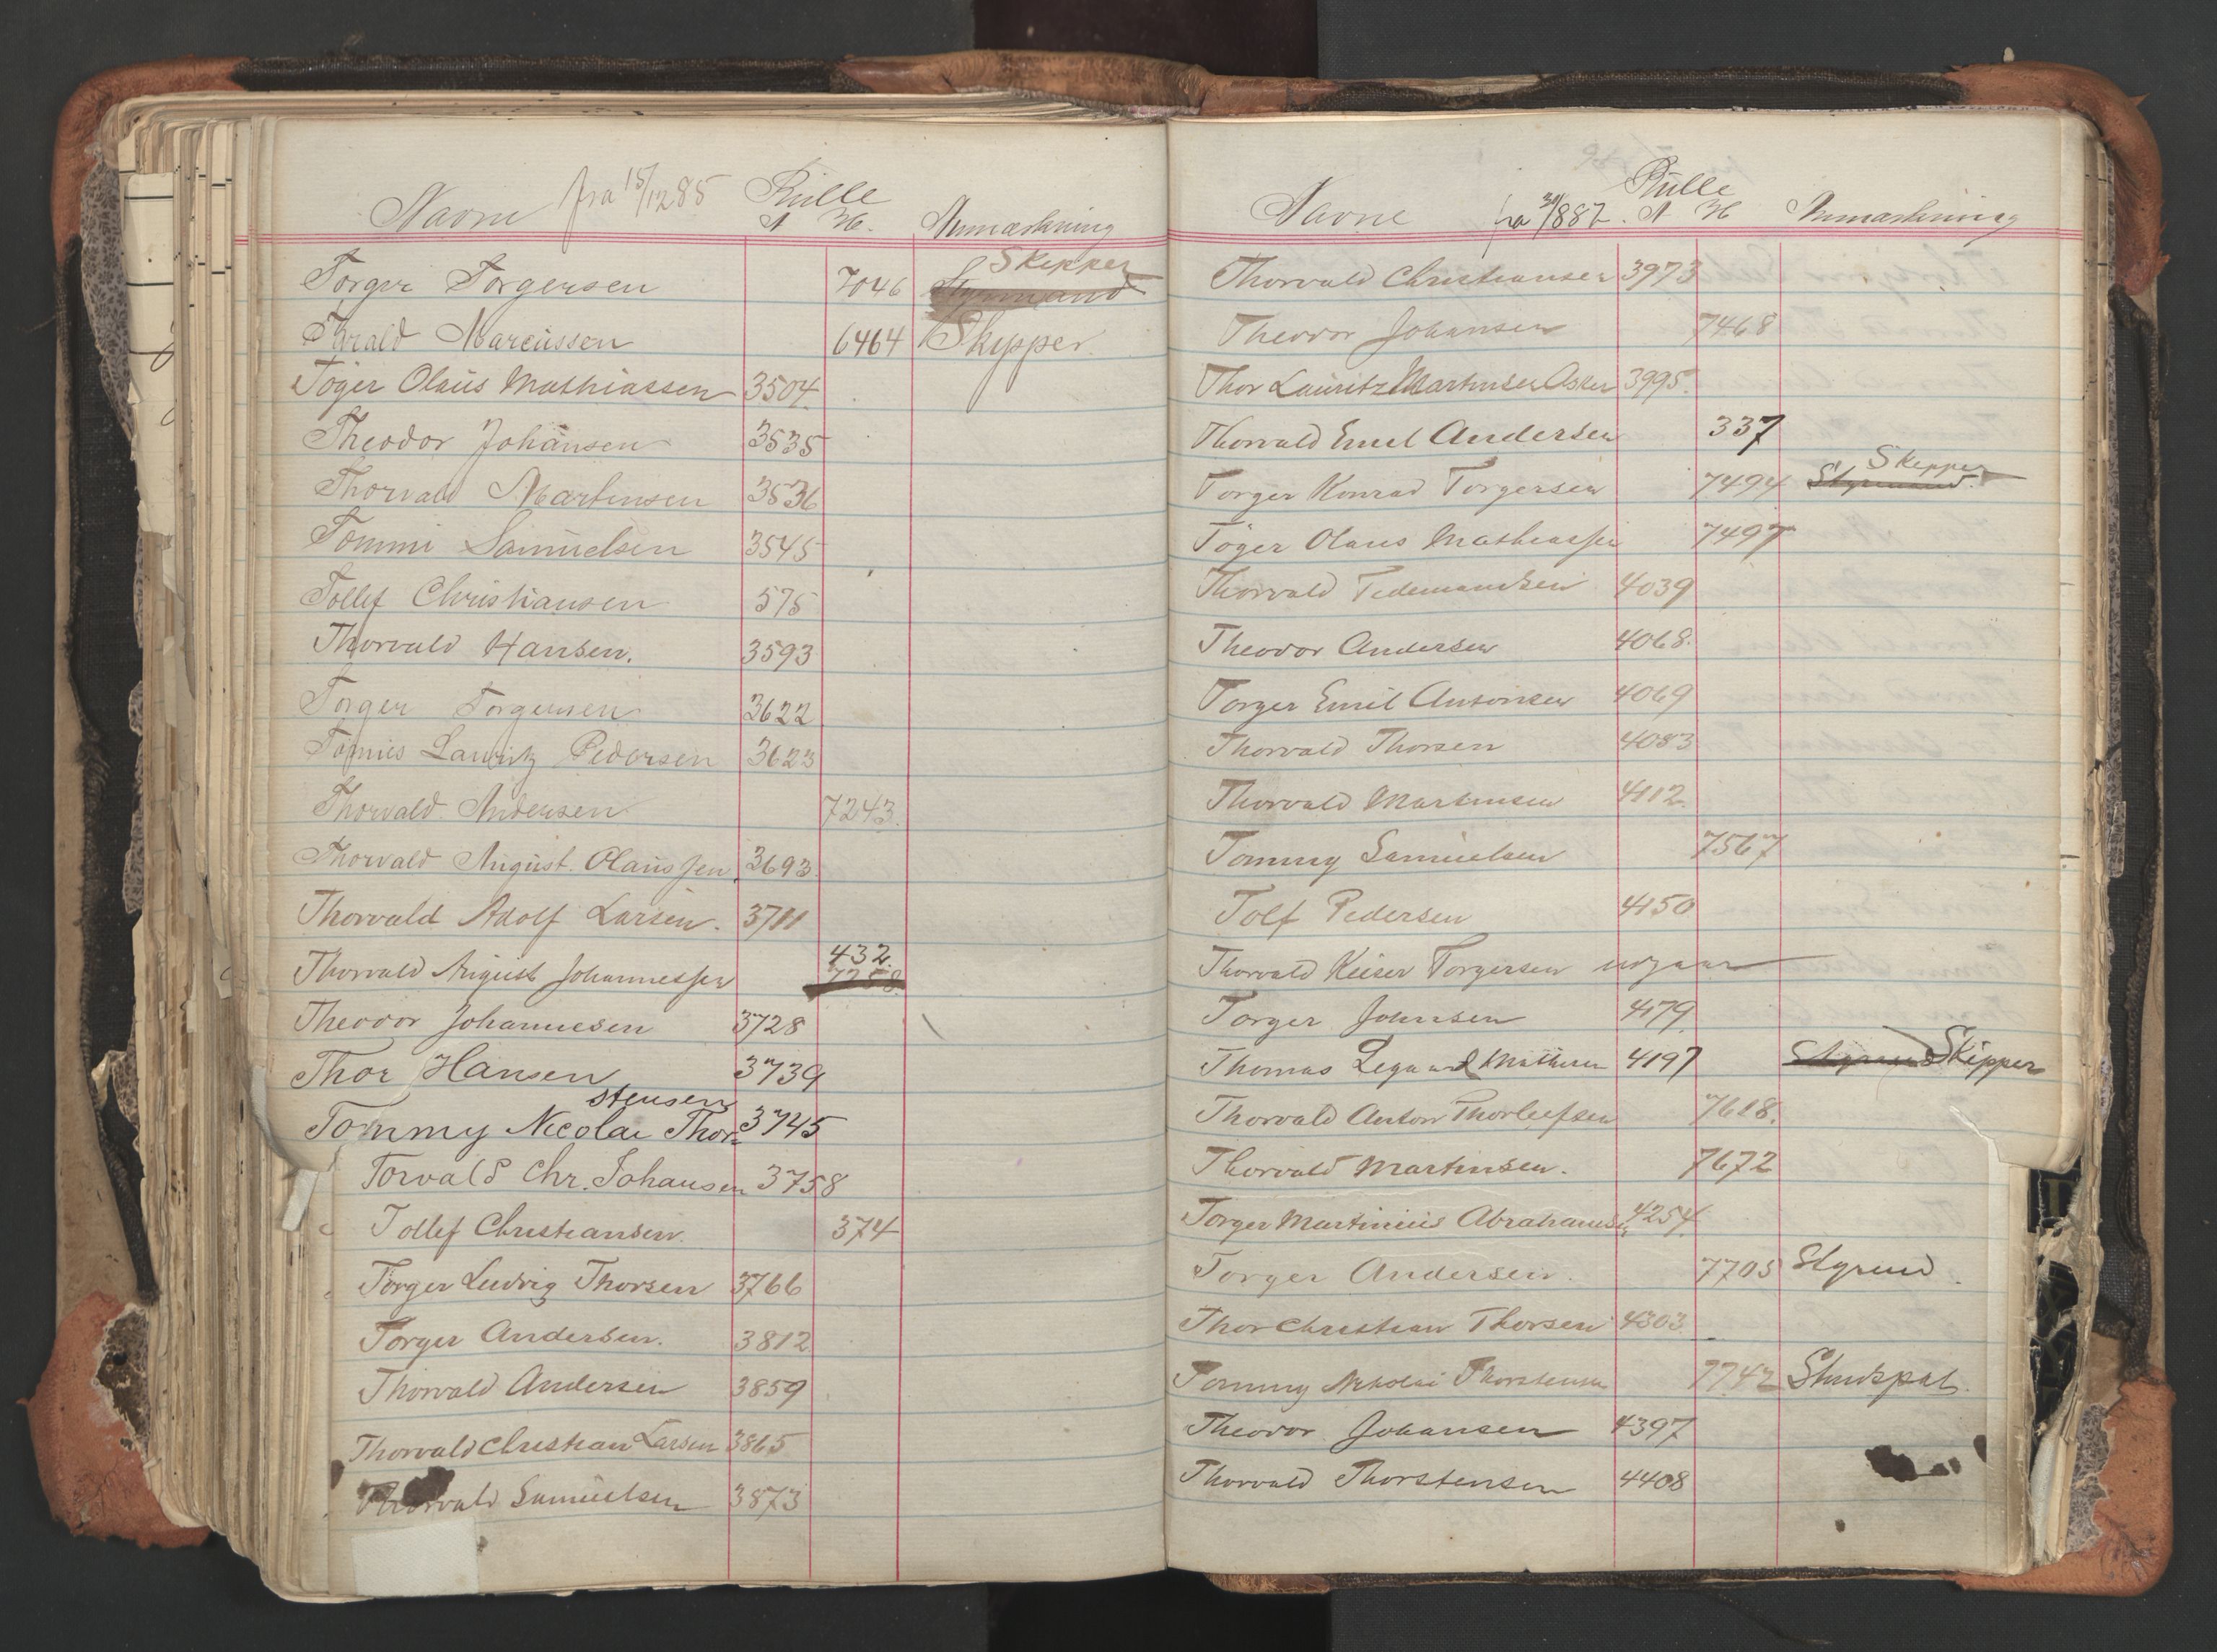 Navne fra 15/12 85 Rulle
A H. Anmærkning
Torger Torgersen 7046 Styrmand Skipper
Thrald Marcussen 6464 Skipper
Töger Olaüs Mathiassen 3504
Theodor Johansen 3535
Thorvald Martinsen 3536
Tommi Samüelsen 3545
Tollef Christiansen 575
Thorvald Hansen. 3593
Torger Torgersen 3622
Tønnes Lauritz Pedersen 3623
Thorvald Andersen 7243.
Thorvald August Olaussen 3693
Thorvald Adolf Larsen. 3711
Thorvald August Johannessen 7258. 432.
Theodor Johannesen 3728
Thor Hansen 3739
Tommy Nicolai Thorstensen 3745
Torvald Chr. Johansen 3758
Tollef Christiansen. 374
Torger Ludvig Thorsen 3766
Torger Andersen. 3812
Thorvald Andersen 3859
Thorvald Christian Larsen 3865
Thorvald Samüelsen 3873
Navne fra /887. Rulle
A H Anmærkning
Thorvald Christiansen 3973
Theodor Johansen 7468
Thor Lauritz Martinsen Asker 3995.
Thorvald Emil Andersen 337
Torger Konrad Torgersen 7494 Styrmand. Skipper
Töger Olaus Mathiassen 7497
Thorvald Tidemandsen 4039
Theodor Andersen 4068.
Torger Emil Antonsen 4069
Thorvald Thorsen 4083
Thorvald Martinsen 4112.
Tommy Samuelsen 7567
Tolf Pedersen 4150
Thorvald Keiser Torgersen udgaar
Torger Johnsen 4179
Thomas Legaard 4197 Styrmand Skipper
Thorvald Anton Thorleifsen 7618.
Thorvald Martinsen. 7672
Torger Martinius Abrahamsen 4254.
Torger Andersen. 7705 Styrmd.
Thor Christian Thorsen 4303
Tommy Nikolai Thorstensen 7742
Theodor Johansen 4397
Thorvald Thorstensen 4408